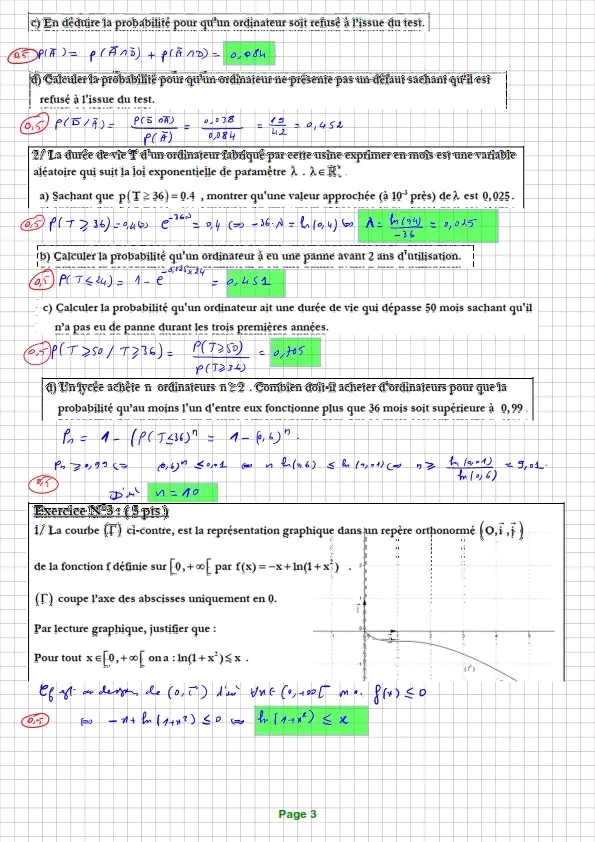 c) En déduire la probabilité pour qu'un ordinateur soit refusé à l'issue du test.
0,5 P(Ā) = p(Ā∩D̄) + p(Ā∩D) = 0,084
d) Calculer la probabilité pour qu'un ordinateur ne présente pas un défaut sachant qu'il est
refusé à l'issue du test.
0,5 P(D̄/Ā) = P(D̄∩Ā)/P(Ā) = 0,038/0,084 = 19/42 = 0,452
2/ La durée de vie T d'un ordinateur fabriqué par cette usine exprimer en mois est une variable
aléatoire qui suit la loi exponentielle de paramètre λ . λ∈ℝ*₊ .
a) Sachant que p(T ≥ 36) = 0.4 , montrer qu'une valeur approchée (à 10⁻³ près) de λ est 0,025 .
0,5 P(T ≥ 36) = 0,4 ⇔ e^(-36λ) = 0,4 ⇔ -36·λ = ln(0,4) ⇔ λ = ln(0,4)/-36 = 0,025
b) Calculer la probabilité qu'un ordinateur à eu une panne avant 2 ans d'utilisation.
0,5 P(T ≤ 24) = 1 - e^(-0,025×24) = 0,451
c) Calculer la probabilité qu'un ordinateur ait une durée de vie qui dépasse 50 mois sachant qu'il
n'a pas eu de panne durant les trois premières années.
0,5 P(T ≥ 50 / T ≥ 36) = P(T ≥ 50)/P(T ≥ 36) = 0,705
d) Un lycée achète n ordinateurs n ≥ 2 . Combien doit-il acheter d'ordinateurs pour que la
probabilité qu'au moins l'un d'entre eux fonctionne plus que 36 mois soit supérieure à 0,99 .
Pn = 1 - (P(T ≤ 36)ⁿ = 1 - (0,6)ⁿ .
Pn ≥ 0,99 ⇔ (0,6)ⁿ ≤ 0,01 ⇔ n ln(0,6) ≤ ln(0,01) ⇔ n ≥ ln(0,01)/ln(0,6) = 9,01.
0,5 D'où n = 10
Exercice N°3 : ( 5 pts )
1/ La courbe (Γ) ci-contre, est la représentation graphique dans un repère orthonormé (O, i⃗ , j⃗ )
de la fonction f définie sur [0,+∞[ par f(x) = −x + ln(1 + x²) .
(Γ) coupe l'axe des abscisses uniquement en 0.
Par lecture graphique, justifier que :
Pour tout x∈[0,+∞[ on a : ln(1 + x²) ≤ x .
Cf est au dessous de (O, i⃗) d'où ∀x∈[0,+∞[ on a f(x) ≤ 0
0,5 ⇔ -x + ln(1+x²) ≤ 0 ⇔ ln(1+x²) ≤ x
Page 3